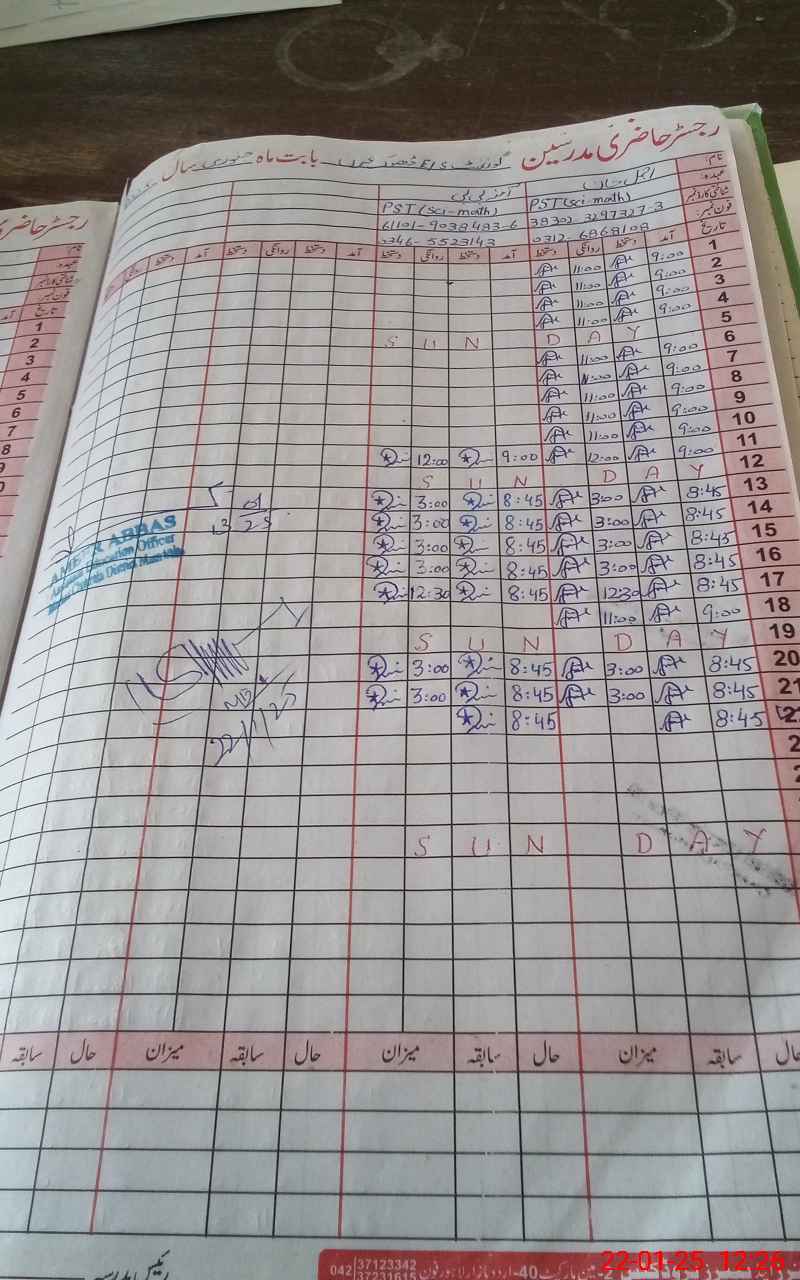 رجسٹر حاضری مدرسین گورنمنٹ بابت ماہ جنوری سال
نام:
عہدہ:
شناختی کارڈ نمبر
فون نمبر:
تاریخ
PST (sci-math) PST (sci-math)
61101-9038483-6 38302-3297327-3
0346-5523143 0312-6868108
آمد دستخط روانگی دستخط آمد دستخط روانگی دستخط آمد دستخط روانگی دستخط
1 9:00 11:00
2 9:00 11:00
3 9:00 11:00
4 9:00 11:00
5 S U N D A Y
6 9:00 11:00
7 9:00 11:00
8 9:00 11:00
9 9:00 11:00
10 9:00 11:00
11 9:00 12:00 9:00 12:00
12 S U N D A Y
13 8:45 3:00 8:45 3:00
14 8:45 3:00 8:45 3:00
15 8:45 3:00 8:45 3:00
16 8:45 3:00 8:45 3:00
17 8:45 12:30 8:45 12:30
18 9:00 11:00
19 S U N D A Y
20 8:45 3:00 8:45 3:00
21 8:45 3:00 8:45 3:00
8:45 8:45
S U N D A Y
AMEER ABBAS
Education Officer
22/1/25
حال سابقہ میزان حال سابقہ میزان حال سابقہ میزان حال سابقہ
042 37123342
37231615
40-اردو بازار لاہور فون
رئیس مدرسہ
22-01-25 12:26
رجسٹر حاضری
نام:
عہدہ:
شناختی کارڈ نمبر
فون نمبر:
تاریخ
آمد
1
2
3
4
5
6
7
8